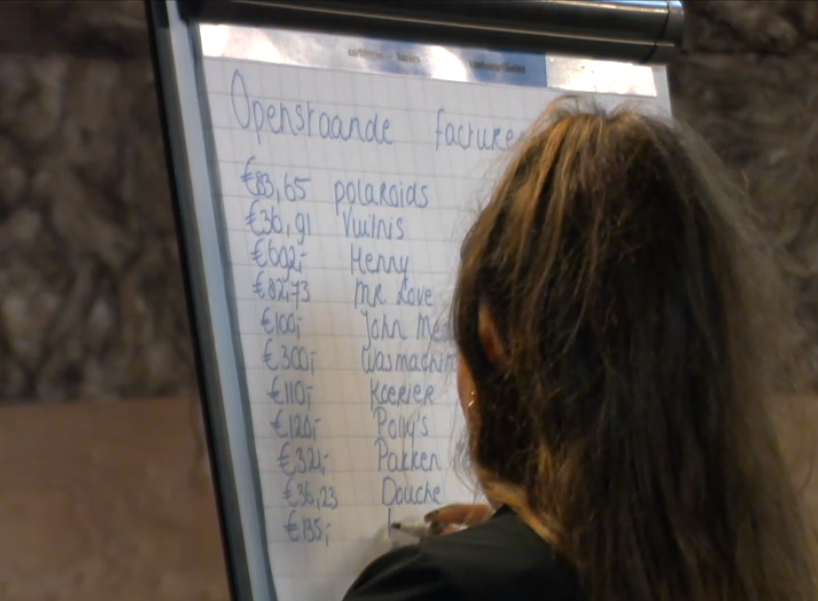 Openstaande facture
€83,65 polaroids
€36,91 Vuilnis
€602,- Henny
€82,73 MR Love
€100,- John Me
€300,- Wasmachin
€110,- Koerier
€120,- Polly's
€321,- Pakken
€36,23 Douche
€135,-